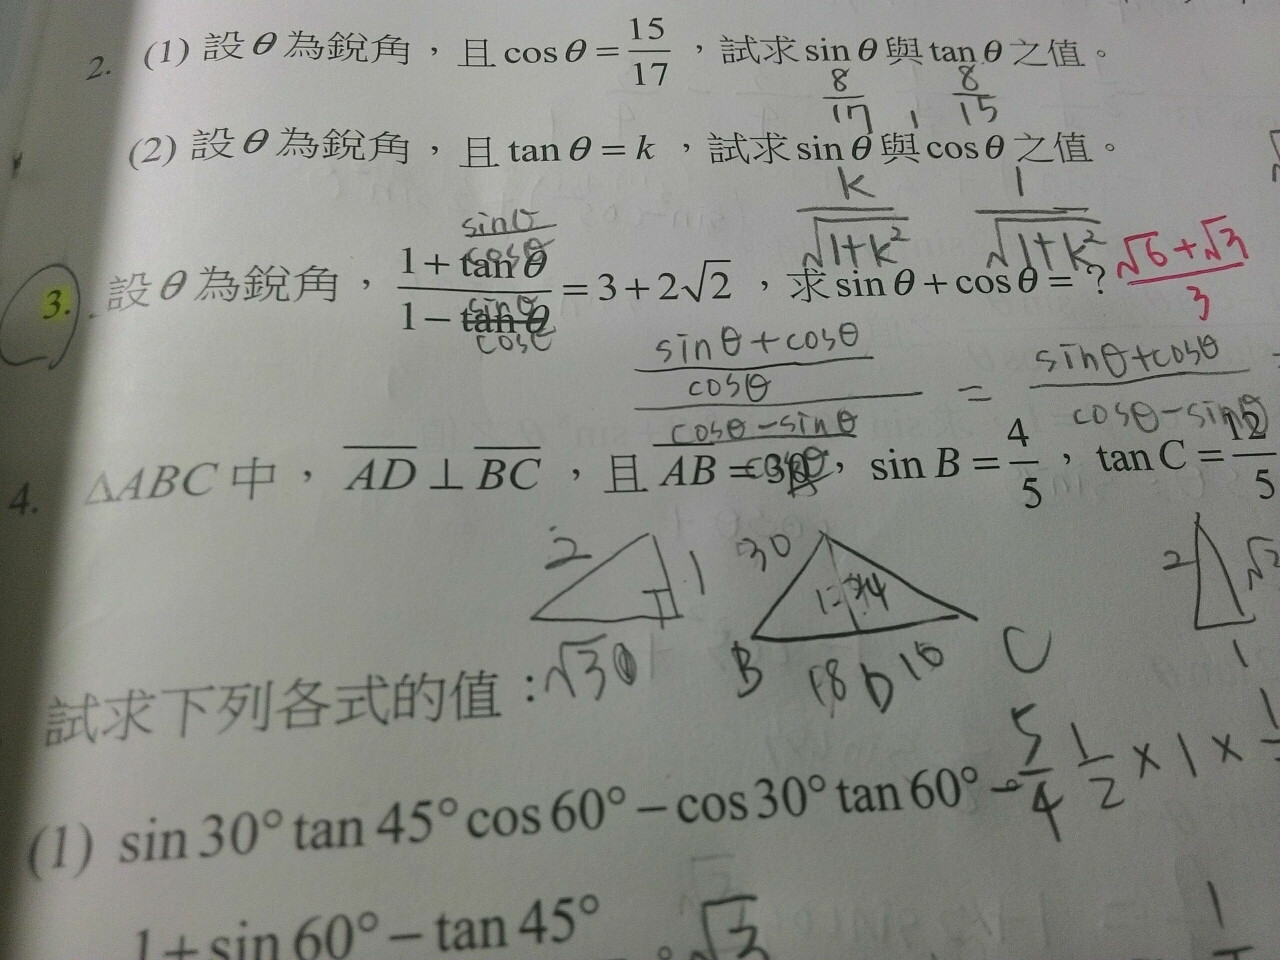 2. (1) 設θ為銳角，且cosθ=15/17，試求sinθ與tanθ之值。
8/17 , 8/15
(2) 設θ為銳角，且tanθ=k，試求sinθ與cosθ之值。
k/√1+k² 1/√1+k²
3. 設θ為銳角，(1+tanθ)/(1−tanθ)=3+2√2，求sinθ+cosθ=? (√6+√3)/3
sinθ/cosθ
sinθ/cosθ
((sinθ+cosθ)/cosθ)/((cosθ−sinθ)/cosθ) = (sinθ+cosθ)/(cosθ−sinθ)
4. △ABC中，AD⊥BC，且AB=30，sinB=4/5，tanC=12/5
2 1 √3
30 24 B 18 D 10 C
2 1
試求下列各式的值：
(1) sin30°tan45°cos60°−cos30°tan60°
−5/4 1/2×1×
1+sin60°−tan45°
√3